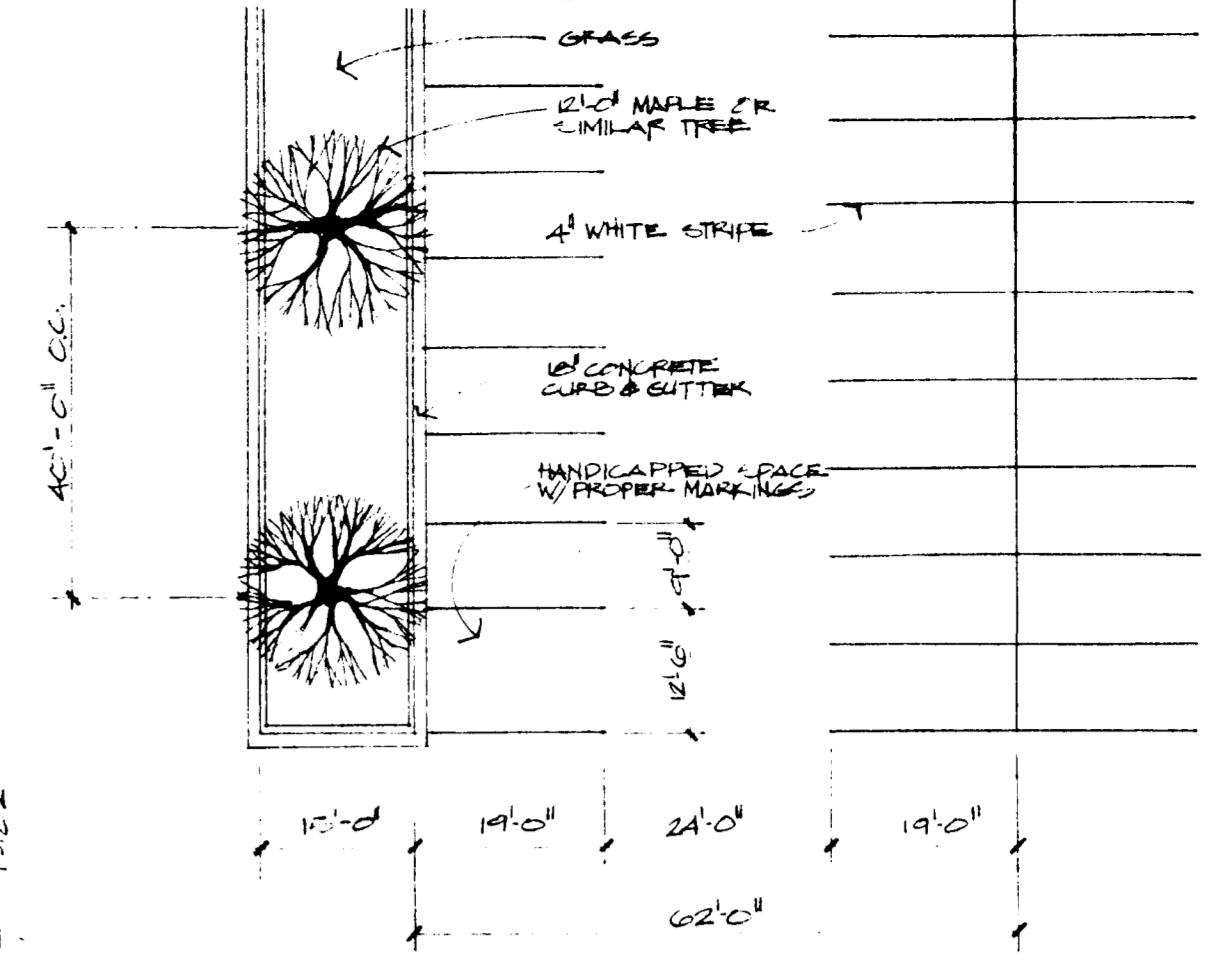 GRASS
12'-0" MAPLE OR
SIMILAR TREE
4" WHITE STRIPE
40'-0" O.C.
18" CONCRETE
CURB & GUTTER
HANDICAPPED SPACE
W/ PROPER MARKINGS
9'-0"
12'-6"
19'-0"
24'-0"
19'-0"
62'-0"